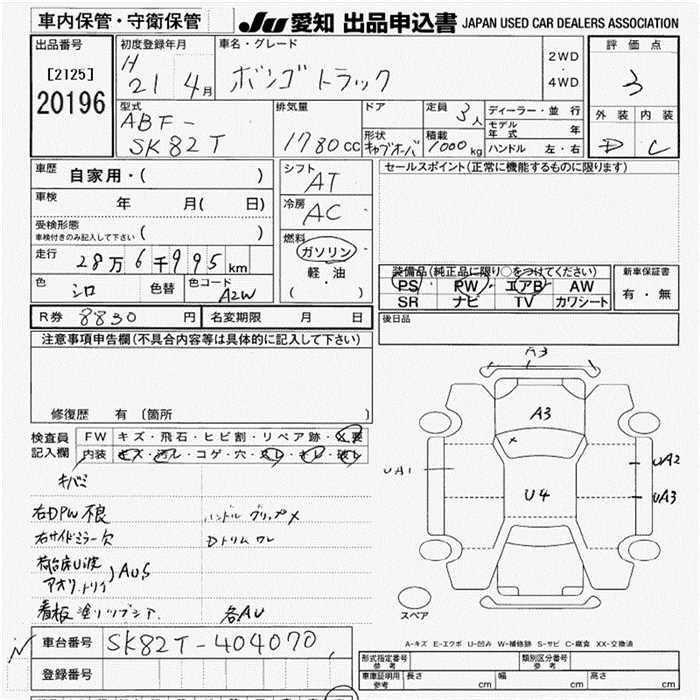 車内保管・守衛保管
JU 愛知 出品申込書 JAPAN USED CAR DEALERS ASSOCIATION
出品番号
[2125]
20196
初度登録年月
H 21 4月
車名・グレード
ボンゴトラック
2WD
・
4WD
評価点
3
型式
ABF-
SK82T
排気量
1780cc
ドア
形状
キャブオーバ
定員 3人
積載
1000kg
ディーラー・並行
モデル
年式 年
ハンドル 左・右
外装 内装
D C
車歴
自家用・( )
車検 年 月( 日)
受検形態
車検付きのみ記入して下さい ( )
走行 28万6千995km
色 シロ 色替 色コード A2W
シフト AT
冷房 AC
燃料
ガソリン
軽・油
( )
セールスポイント(正常に機能するものに限ります)
装備品(純正品に限り○をつけてください)
PS PW エアB AW
SR ナビ TV カワシート
新車保証書
有・無
R券 8830円 名変期限 月 日
後日品
注意事項申告欄(不具合内容等は具体的に記入して下さい)
修復歴 有 〔箇所 〕
検査員
記入欄
FW キズ・飛石・ヒビ割・リペア跡・X要
内装 キズ・汚レ・コゲ・穴・スレ・キレ・破レ
キバミ
右DPW不良 ハンドルグリップ×
右サイドミラー欠 Dトリムワレ
荷台床U波
アオリ.トリイ AUS
看板塗りツブシア 各AU
車台番号 SK82T-404070
登録番号
A3
A3
UA1
U4
UA2
UA3
スペア
A-キズ E-エクボ U-凹み W-補修跡 S-サビ C-腐食 XX-交換済
形式指定番号
参考
類別区分番号
参考
車庫証明用
参考
長さ cm 幅 cm 高さ cm